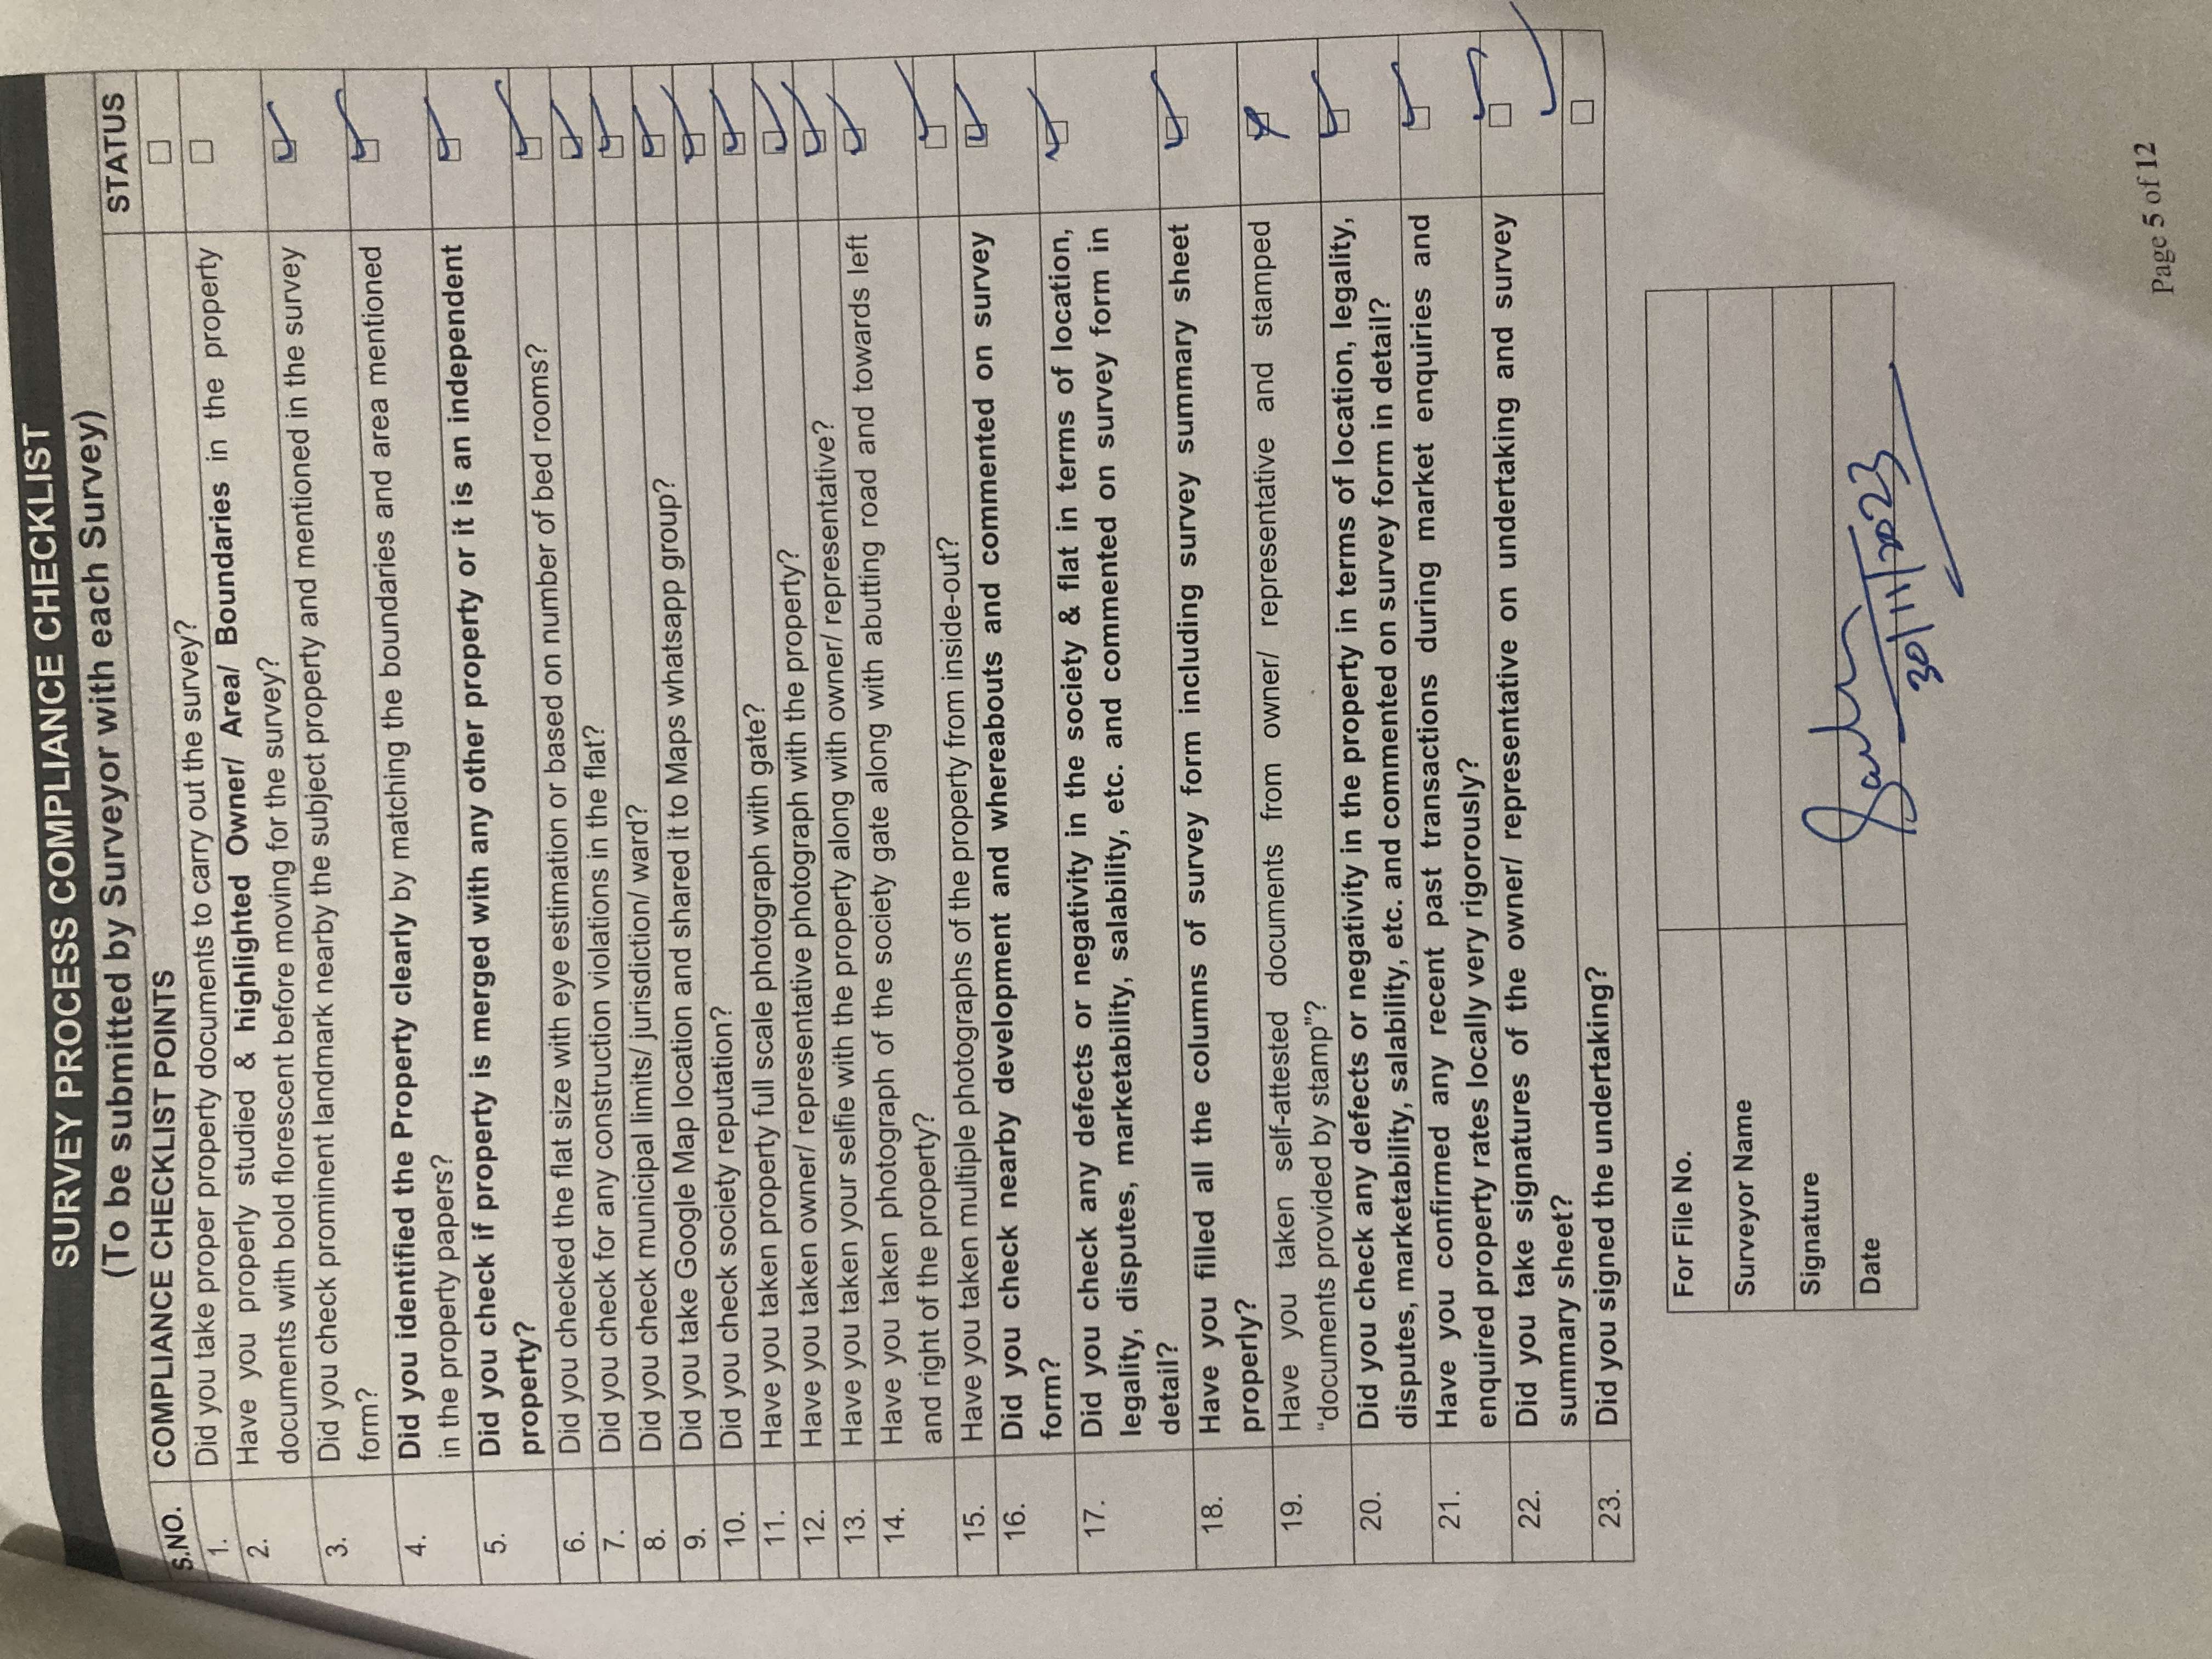 SURVEY PROCESS COMPLIANCE CHECKLIST
(To be submitted by Surveyor with each Survey)
S.NO. COMPLIANCE CHECKLIST POINTS STATUS
1. Did you take proper property documents to carry out the survey?
2. Have you properly studied & highlighted Owner/ Area/ Boundaries in the property
documents with bold florescent before moving for the survey?
3. Did you check prominent landmark nearby the subject property and mentioned in the survey
form?
4. Did you identified the Property clearly by matching the boundaries and area mentioned
in the property papers?
5. Did you check if property is merged with any other property or it is an independent
property?
6. Did you checked the flat size with eye estimation or based on number of bed rooms?
7. Did you check for any construction violations in the flat?
8. Did you check municipal limits/ jurisdiction/ ward?
9. Did you take Google Map location and shared it to Maps whatsapp group?
10. Did you check society reputation?
11. Have you taken property full scale photograph with gate?
12. Have you taken owner/ representative photograph with the property?
13. Have you taken your selfie with the property along with owner/ representative?
14. Have you taken photograph of the society gate along with abutting road and towards left
and right of the property?
15. Have you taken multiple photographs of the property from inside-out?
16. Did you check nearby development and whereabouts and commented on survey
form?
17. Did you check any defects or negativity in the society & flat in terms of location,
legality, disputes, marketability, salability, etc. and commented on survey form in
detail?
18. Have you filled all the columns of survey form including survey summary sheet
properly?
19. Have you taken self-attested documents from owner/ representative and stamped
“documents provided by stamp”?
20. Did you check any defects or negativity in the property in terms of location, legality,
disputes, marketability, salability, etc. and commented on survey form in detail?
21. Have you confirmed any recent past transactions during market enquiries and
enquired property rates locally very rigorously?
22. Did you take signatures of the owner/ representative on undertaking and survey
summary sheet?
23. Did you signed the undertaking?
For File No.
Surveyor Name
Signature
Date 30/11/2023
Page 5 of 12